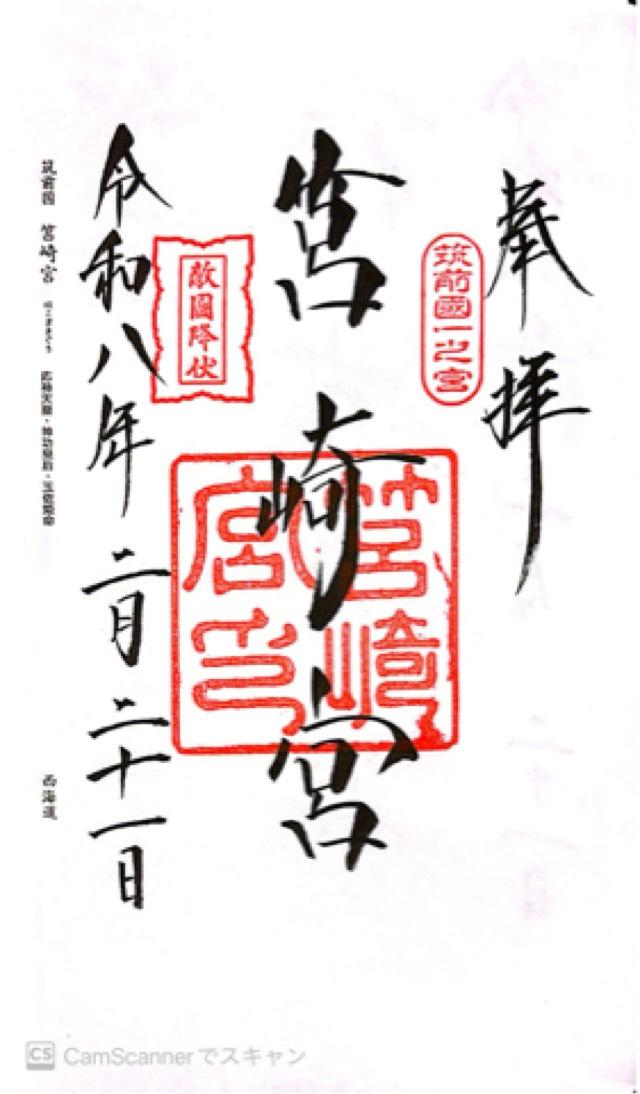 奉拝
筑前國一之宮
筥崎宮
筥崎宮印
敵國降伏
令和八年二月二十一日
筑前国 筥崎宮 はこざきぐう 応神天皇・神功皇后・玉依姫命
西海道
CS CamScannerでスキャン